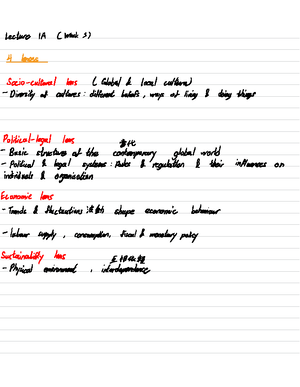 Lecture 1A (Week 3)
4 lenses
Socio-cultural lens (Global & local culture)
- Diversity of cultures: different beliefs, ways of living & doing things
Political-legal lens
- Basic structures of the contemporary global world
- Political & legal systems: Rules & regulation & their influences on
individuals & organisation
Economic lens
- Trends & fluctuations shape economic behaviour
- labour supply, consumption, fiscal & monetary policy
Sustainability lens
- Physical environment, interdependence